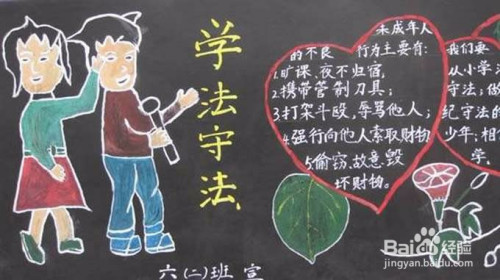 学法守法
未成年人
的不良 行为主要有:
1.旷课、夜不归宿;
2.携带管制刀具;
3.打架斗殴、辱骂他人;
4.强行向他人索取财物
5.偷窃、故意毁
坏财物。
我们要
从小学法
守法;做
纪守法的
少年;相
学。
六(二)班 宣
Baidu 经验
jingyan.baidu.com